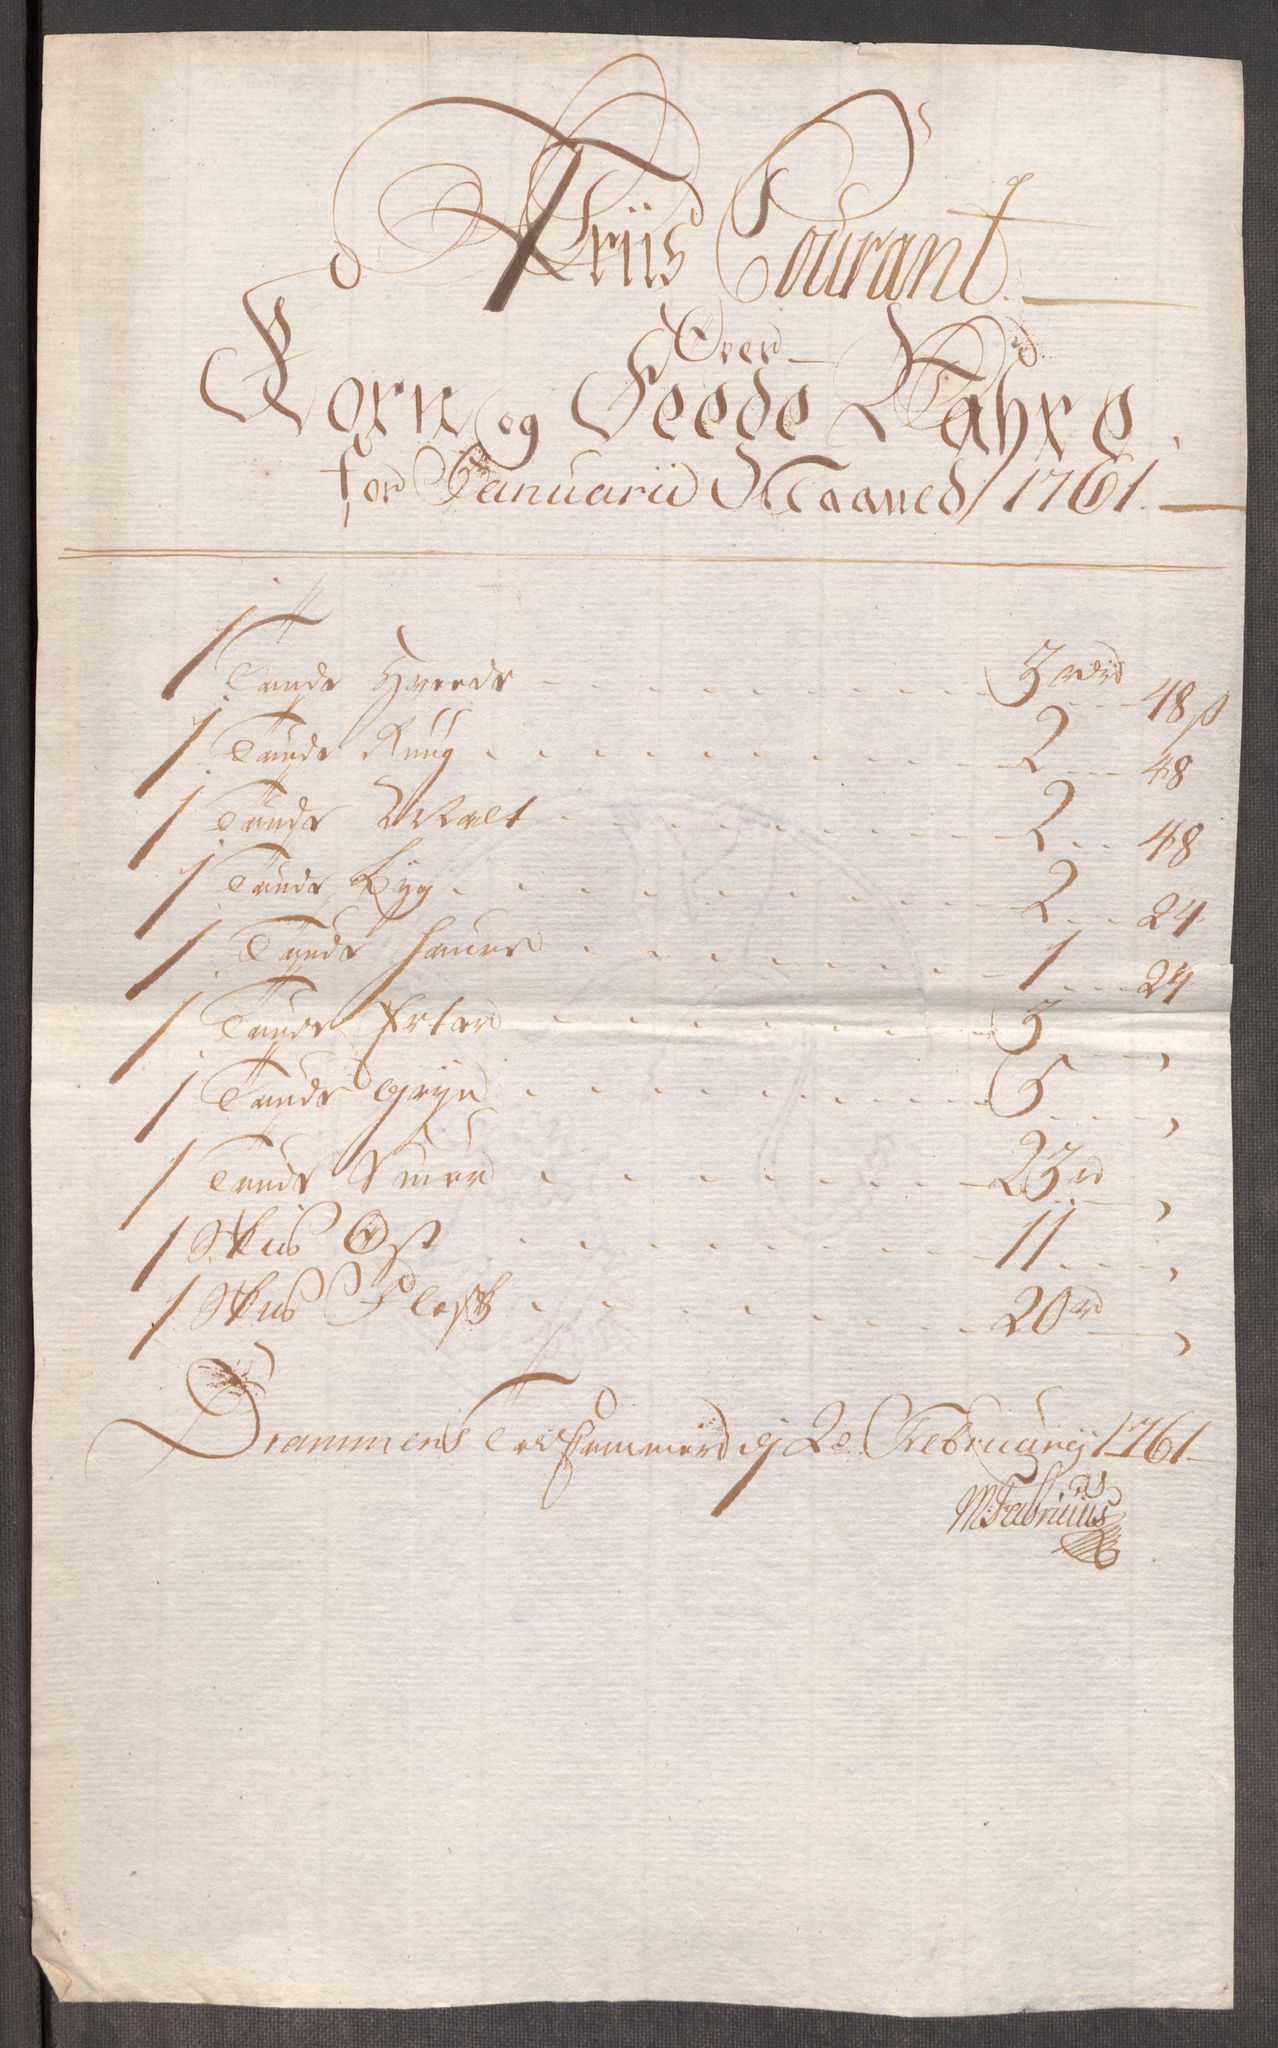 Priis Courant
Over
Korn og Feede Vahre
for Januarii Maaned 1761.
1 Tønde Hveede 3 rdr 48 ß
1 Tønde Ruug 2 48
1 Tønde Malt 2 48
1 Tønde Byg 2 24
1 Tønde Hauer 1 24
1 Tønde Erter 3 "
1 Tønde Gryn 5 "
1 Tønde Smør 23 rd "
1 Skp Ost 11 "
1 Skp Flesk 20 rd "
Drammens Toldkammer d 2e February 1761
M: Fabricius